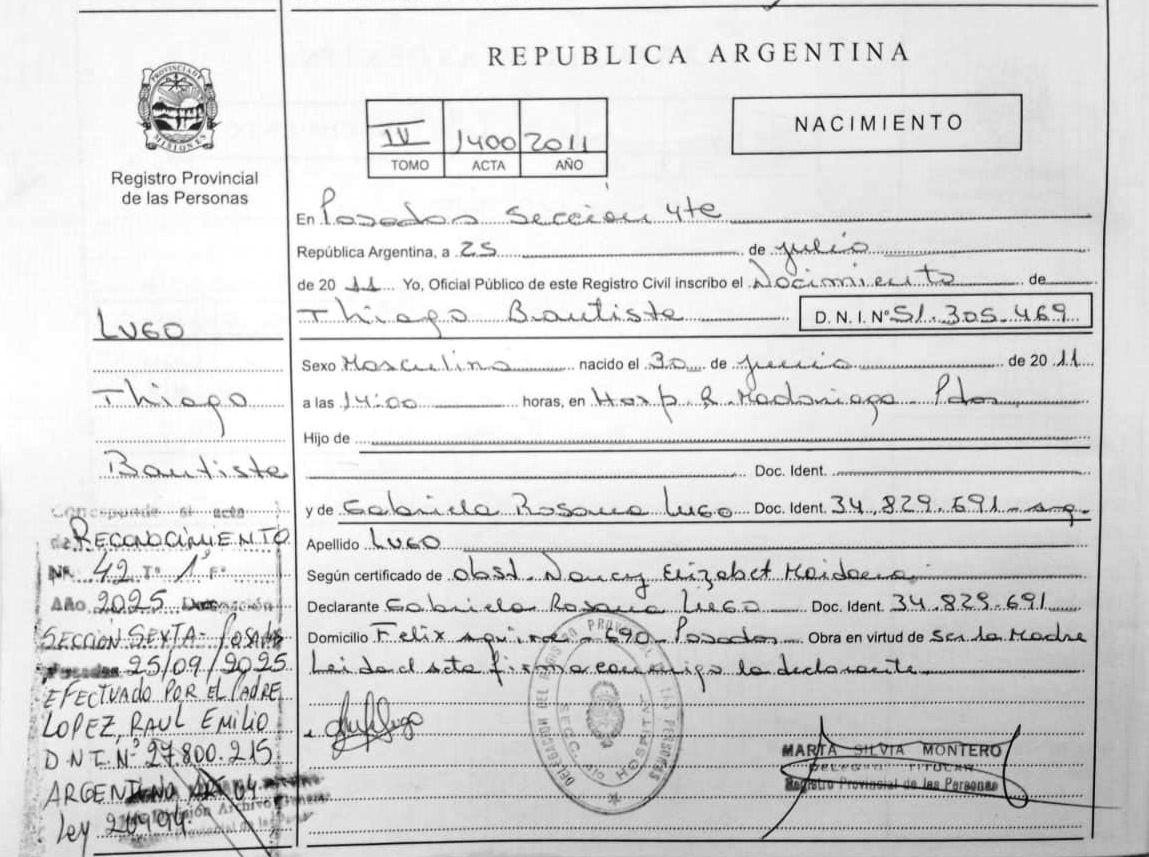 REPUBLICA ARGENTINA
PROVINCIA DE MISIONES
Registro Provincial
de las Personas
IV 1400 2011
TOMO ACTA AÑO
NACIMIENTO
En Posadas Sección 4ta
República Argentina, a 25 de julio
de 2011 Yo, Oficial Público de este Registro Civil inscribo el Nacimiento de
Thiago Bautista D.N.I. Nº 51.305.469
Sexo Masculino nacido el 30 de junio de 2011
a las 14:00 horas, en Hosp. R. Madariaga - Pdas
Hijo de
Doc. Ident.
y de Gabriela Rosana Lugo Doc. Ident. 34.829.691 - arg.
Apellido Lugo
Según certificado de obst. Nancy Elizabet
Declarante Gabriela Rosana Lugo Doc. Ident. 34.829.691
Domicilio Felix Aguirre - 690 - Posadas Obra en virtud de Ser la Madre
Leida el acta firma conmigo la declarante
MARTA SILVIA MONTERO
DELEGADO TITULAR
Registro Provincial de las Personas
LUGO
Thiago
Bautista
Corresponde al acta
de RECONOCIMIENTO
Nº 42 Tº 1º Fº
Año 2025
SECCION SEXTA - POSADAS
Posadas 25/09/2025
EFECTUADO POR EL PADRE
LOPEZ, RAUL EMILIO
D N I. Nº 27.800.215
ARGENTINO
Ley